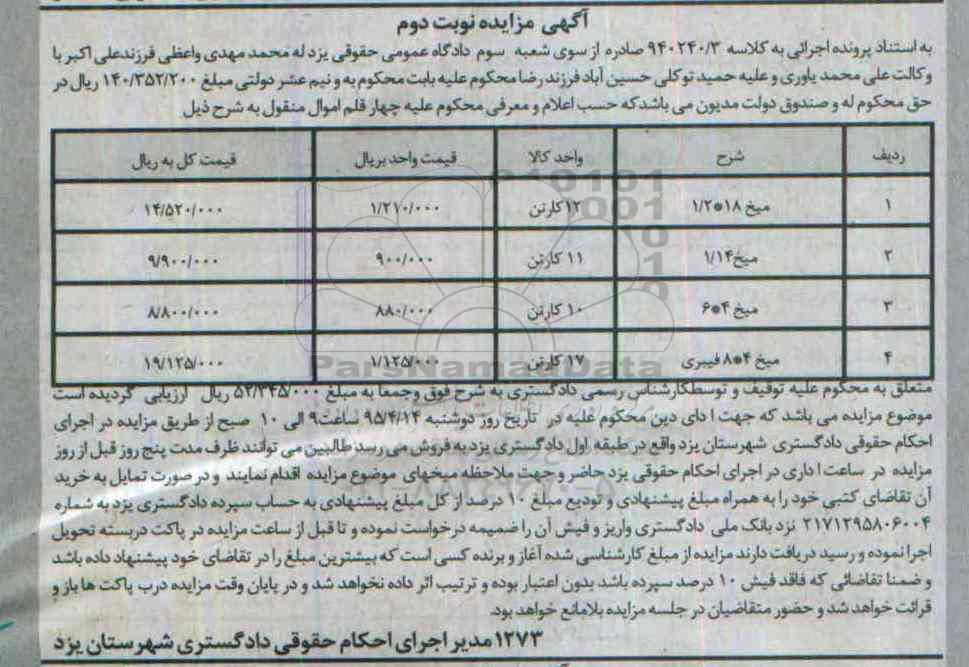 آگهی مزایده نوبت دوم
به استناد پرونده اجرائی به کلاسه ۹۴۰۲۴۰/۳ صادره از سوی شعبه سوم دادگاه عمومی حقوقی یزد له محمد مهدی واعظی فرزند علی اکبر با
وکالت علی محمد یاوری و علیه حمید توکلی حسین آباد فرزند رضا محکوم علیه بابت محکوم به و نیم عشر دولتی مبلغ ۱۴۰/۳۵۲/۲۰۰ ریال در
حق محکوم له و صندوق دولت مدیون می باشد که حسب اعلام و معرفی محکوم علیه چهار قلم اموال منقول به شرح ذیل
ردیف شرح واحد کالا قیمت واحد بریال قیمت کل به ریال
۱ میخ ۱۸*۱/۲ ۱۲کارتن ۱/۲۱۰/۰۰۰ ۱۴/۵۲۰/۰۰۰
۲ میخ۱/۱۴ ۱۱ کارتن ۹۰۰/۰۰۰ ۹/۹۰۰/۰۰۰
۳ میخ ۴*۶ ۱۰ کارتن ۸۸۰/۰۰۰ ۸/۸۰۰/۰۰۰
۴ میخ ۴*۸ فیبری ۱۷ کارتن ۱/۱۲۵/۰۰۰ ۱۹/۱۲۵/۰۰۰
ParsNamadData
متعلق به محکوم علیه توقیف و توسطکارشناس رسمی دادگستری به شرح فوق وجمعا به مبلغ ۵۲/۳۴۵/۰۰۰ ریال ارزیابی گردیده است
موضوع مزایده می باشد که جهت ا دای دین محکوم علیه در تاریخ روز دوشنبه ۹۵/۴/۱۴ ساعت۹ الی ۱۰ صبح از طریق مزایده در اجرای
احکام حقوقی دادگستری شهرستان یزد واقع در طبقه اول دادگستری یزد به فروش می رسد طالبین می توانند ظرف مدت پنج روز قبل از روز
مزایده در ساعت ا داری در اجرای احکام حقوقی یزد حاضر و جهت ملاحظه میخهای موضوع مزایده اقدام نمایند و در صورت تمایل به خرید
آن تقاضای کتبی خود را به همراه مبلغ پیشنهادی و تودیع مبلغ ۱۰ درصد از کل مبلغ پیشنهادی به حساب سپرده دادگستری یزد به شماره
۲۱۷۱۲۹۵۸۰۶۰۰۴ نزد بانک ملی دادگستری واریز و فیش آن را ضمیمه درخواست نموده و تا قبل از ساعت مزایده در پاکت دربسته تحویل
اجرا نموده و رسید دریافت دارند مزایده از مبلغ کارشناسی شده آغاز و برنده کسی است که بیشترین مبلغ را در تقاضای خود پیشنهاد داده باشد
و ضمنا تقاضائی که فاقد فیش ۱۰ درصد سپرده باشد بدون اعتبار بوده و ترتیب اثر داده نخواهد شد و در پایان وقت مزایده درب پاکت ها باز و
قرائت خواهد شد و حضور متقاضیان در جلسه مزایده بلامانع خواهد بود.
۱۲۷۳ مدیر اجرای احکام حقوقی دادگستری شهرستان یزد